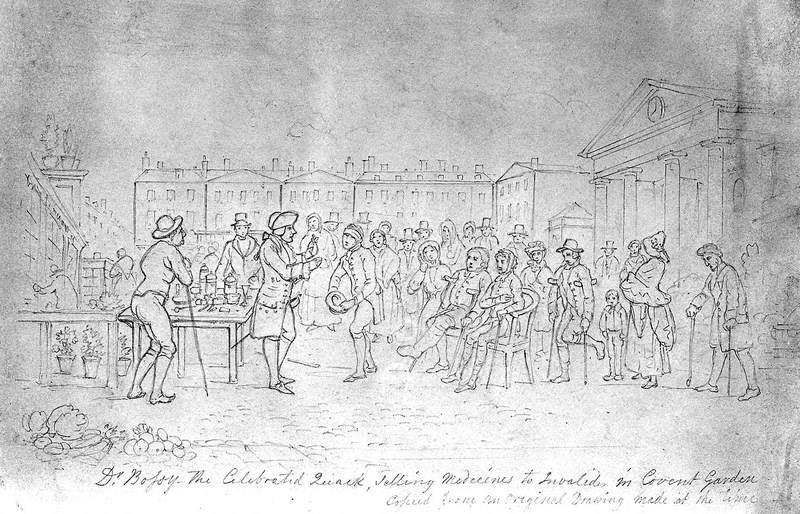 Dr Bossy. The Celebrated Quack, Selling Medecines to Invalides in Covent Garden
Copied from an original Drawing made at the time